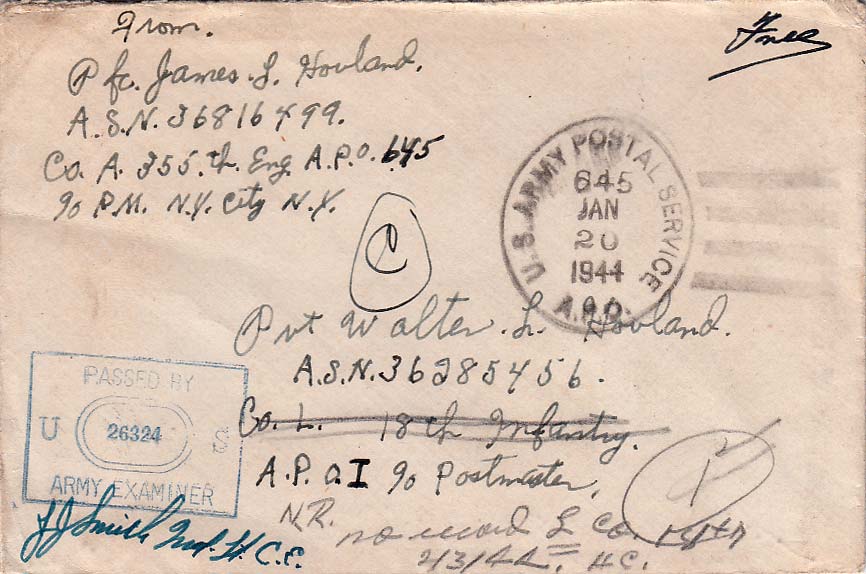 From.
Free
Pfc. James L. Hovland.
A.S.N. 36816499.
Co. A. 355.th Eng. A.P.O. 645
℅ P.M. N.Y. City N.Y.
C
U.S. ARMY POSTAL SERVICE
645
JAN
20
1944
A.P.O.
Pvt Walter. L. Hovland.
A.S.N. 36285456.
Co. L. 18th Infantry.
A.P.O. 1 ℅ Postmaster.
PASSED BY
U 26324 S
ARMY EXAMINER
N.R.
no record L Co.
2/3/44 H.C.